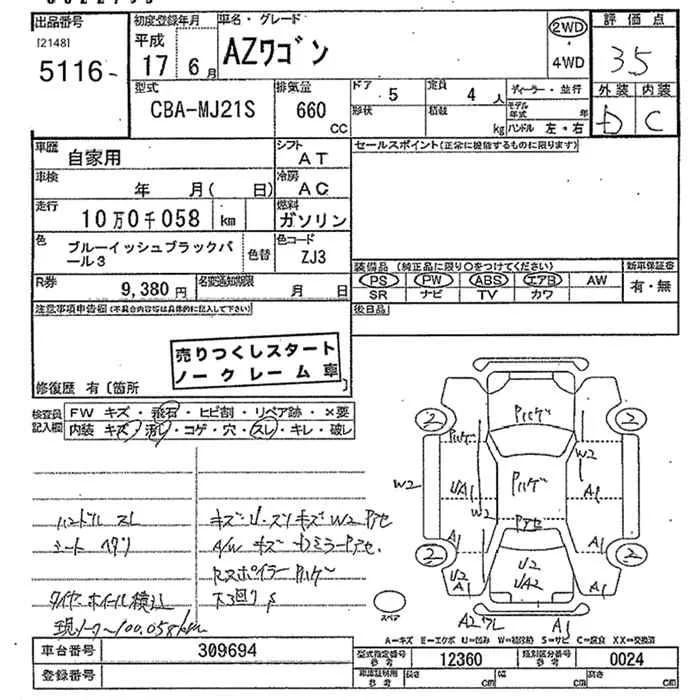 出品番号
[2148]
5116
初度登録年月
平成
17 6月
車名・グレード
AZワゴン
2WD
・
4WD
評価点
3.5
外装 内装
D C
型式
CBA-MJ21S
排気量
660
CC
ドア 5
定員 4 人
形状
積載 kg
ディーラー・並行
モデル年式 年
ハンドル 左・右
車歴
自家用
シフト
AT
セールスポイント(正常に機能するものに限ります)
車検
年 月( 日)
冷房
AC
走行
10万0千058 km
燃料
ガソリン
色
ブルーイッシュブラックパール3
色替
色コード
ZJ3
装備品 (純正品に限り○をつけてください)
新車保証書
PS PW ABS エアB AW
SR ナビ TV カワ
有・無
R券
9,380円
名変通知期限
月 日
注意事項申告欄(不具合内容等は具体的に記入して下さい)
後日品
売りつくしスタート
ノークレーム車
修復歴 有〔箇所
検査員
記入欄
FW キズ・飛石・ヒビ割・リペア跡・×要
内装 キズ・汚れ・コゲ・穴・スレ・キレ・破レ
ハンドル スレ
シート ヘタリ
タイヤ・ホイール積込
現メーター100,058km
キズ・U・スリキズ W2 Pアセ
A/W キズ ミラーPアセ
Rスポイラー Pハゲ
下回り S
2
2
2
2
Pハゲ
Pハゲ
W2
W2
UA1
W2
Pハゲ
A1
Pアセ
A1
A1
U2
A1
U2
UA2
A1
スペア
A1
A=キズ E=エクボ U=凹み W=補修跡 S=サビ C=腐食 XX=交換済
車台番号
309694
型式指定番号
参考
12360
類別区分番号
参考
0024
登録番号
車庫証明用
参考
長さ cm
幅 cm
高さ cm